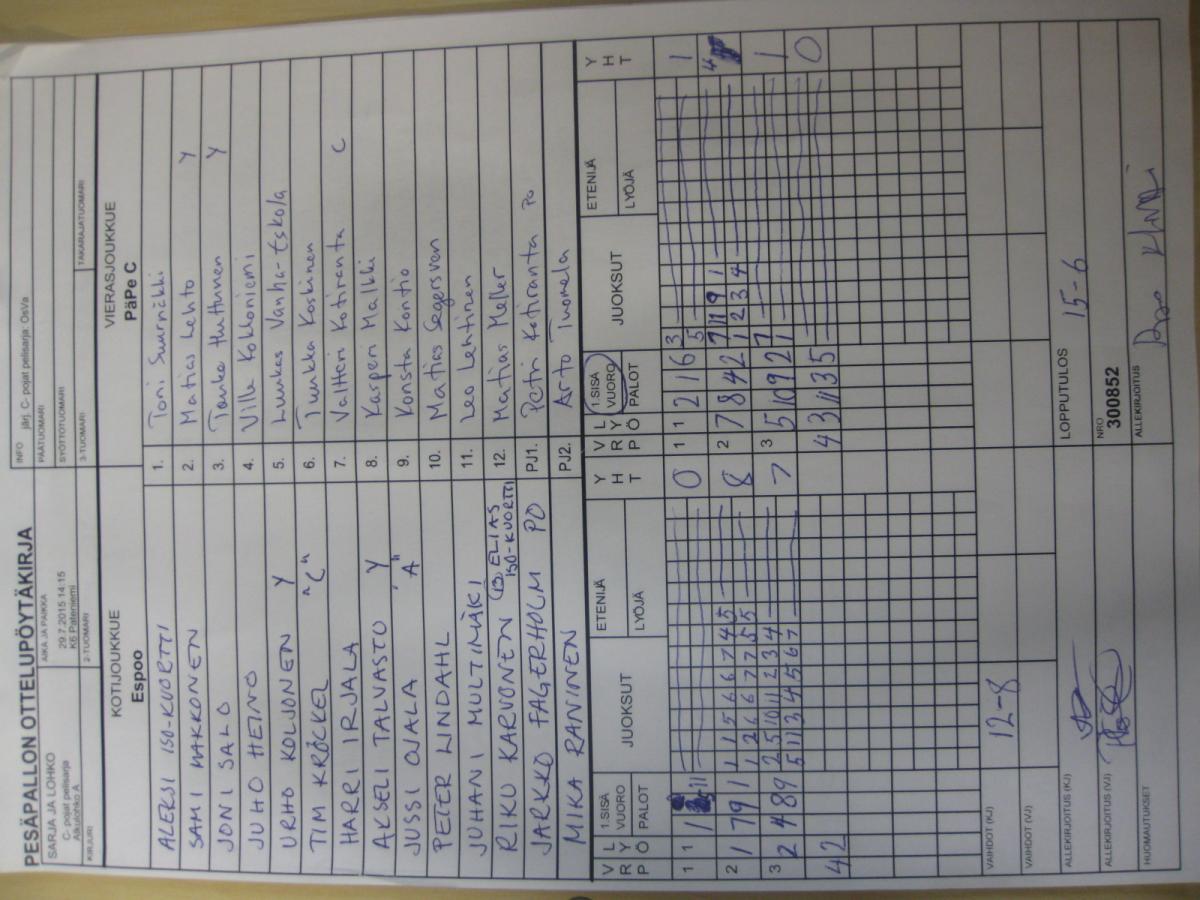 PESÄPALLON OTTELUPÖYTÄKIRJA
SARJA JA LOHKO
C- pojat pelisarja
Alkulohko A
AIKA JA PAIKKA
29.7.2015 14:15
K6 Pateniemi
INFO
järj. C- pojat pelisarja: OsVa
KIRJURI
2-TUOMARI
PÄÄTUOMARI
SYÖTTÖTUOMARI
3-TUOMARI
TAKARAJATUOMARI
KOTIJOUKKUE
Espoo
VIERASJOUKKUE
PäPe C
ALEKSI ISO-KUORTTI 1. Toni Suurnäkki
SAMI HAKKONEN 2. Matias Lehto Y
JONI SALO 3. Huttunen Y
JUHO HEINO 4. Ville Kokkoniemi
URHO KOLJONEN Y 5. Luukas Vanha-Eskola
TIM KRÖCKEL "C" 6. Tuukka Koskinen
HARRI IRJALA 7. Valtteri Kotiranta C
AKSELI TALVASTO Y 8. Kasperi Malkki
JUSSI OJALA "A" 9. Konsta Kontio
PETER LINDAHL 10. Matias Segersven
JUHANI MULTIMÄKI 11. Leo Lehtinen
RIKU KARVONEN 13 ELIAS ISO-KUORTTI 12. Matias Meller
JARKKO FAGERHOLM PO PJ1. Petri Kotiranta Po
MIKA RANNINEN PJ2. Arto Tuomela
V R P L Y Ö 1.SISÄ VUORO PALOT JUOKSUT ETENIJÄ LYÖJÄ Y H T V R P L Y Ö 1.SISÄ VUORO PALOT JUOKSUT ETENIJÄ LYÖJÄ Y H T
1 1 1 11 0 1 1 2 1 6 3 5 1
2 1 7 9 1 1 1 5 6 6 7 4 5 8 2 7 8 4 2 7 11 9 1 4
1 2 6 6 7 7 5 5 1 1 2 3 4
3 2 4 8 9 2 5 10 11 2 3 4 7 3 5 10 9 2 1
5 11 3 4 5 6 7
4 2 4 3 11 3 5 0
VAIHDOT (KJ) 12-8
VAIHDOT (VJ)
ALLEKIRJOITUS (KJ) LOPPUTULOS 15-6
ALLEKIRJOITUS (VJ) NRO
300852
HUOMAUTUKSET ALLEKIRJOITUS